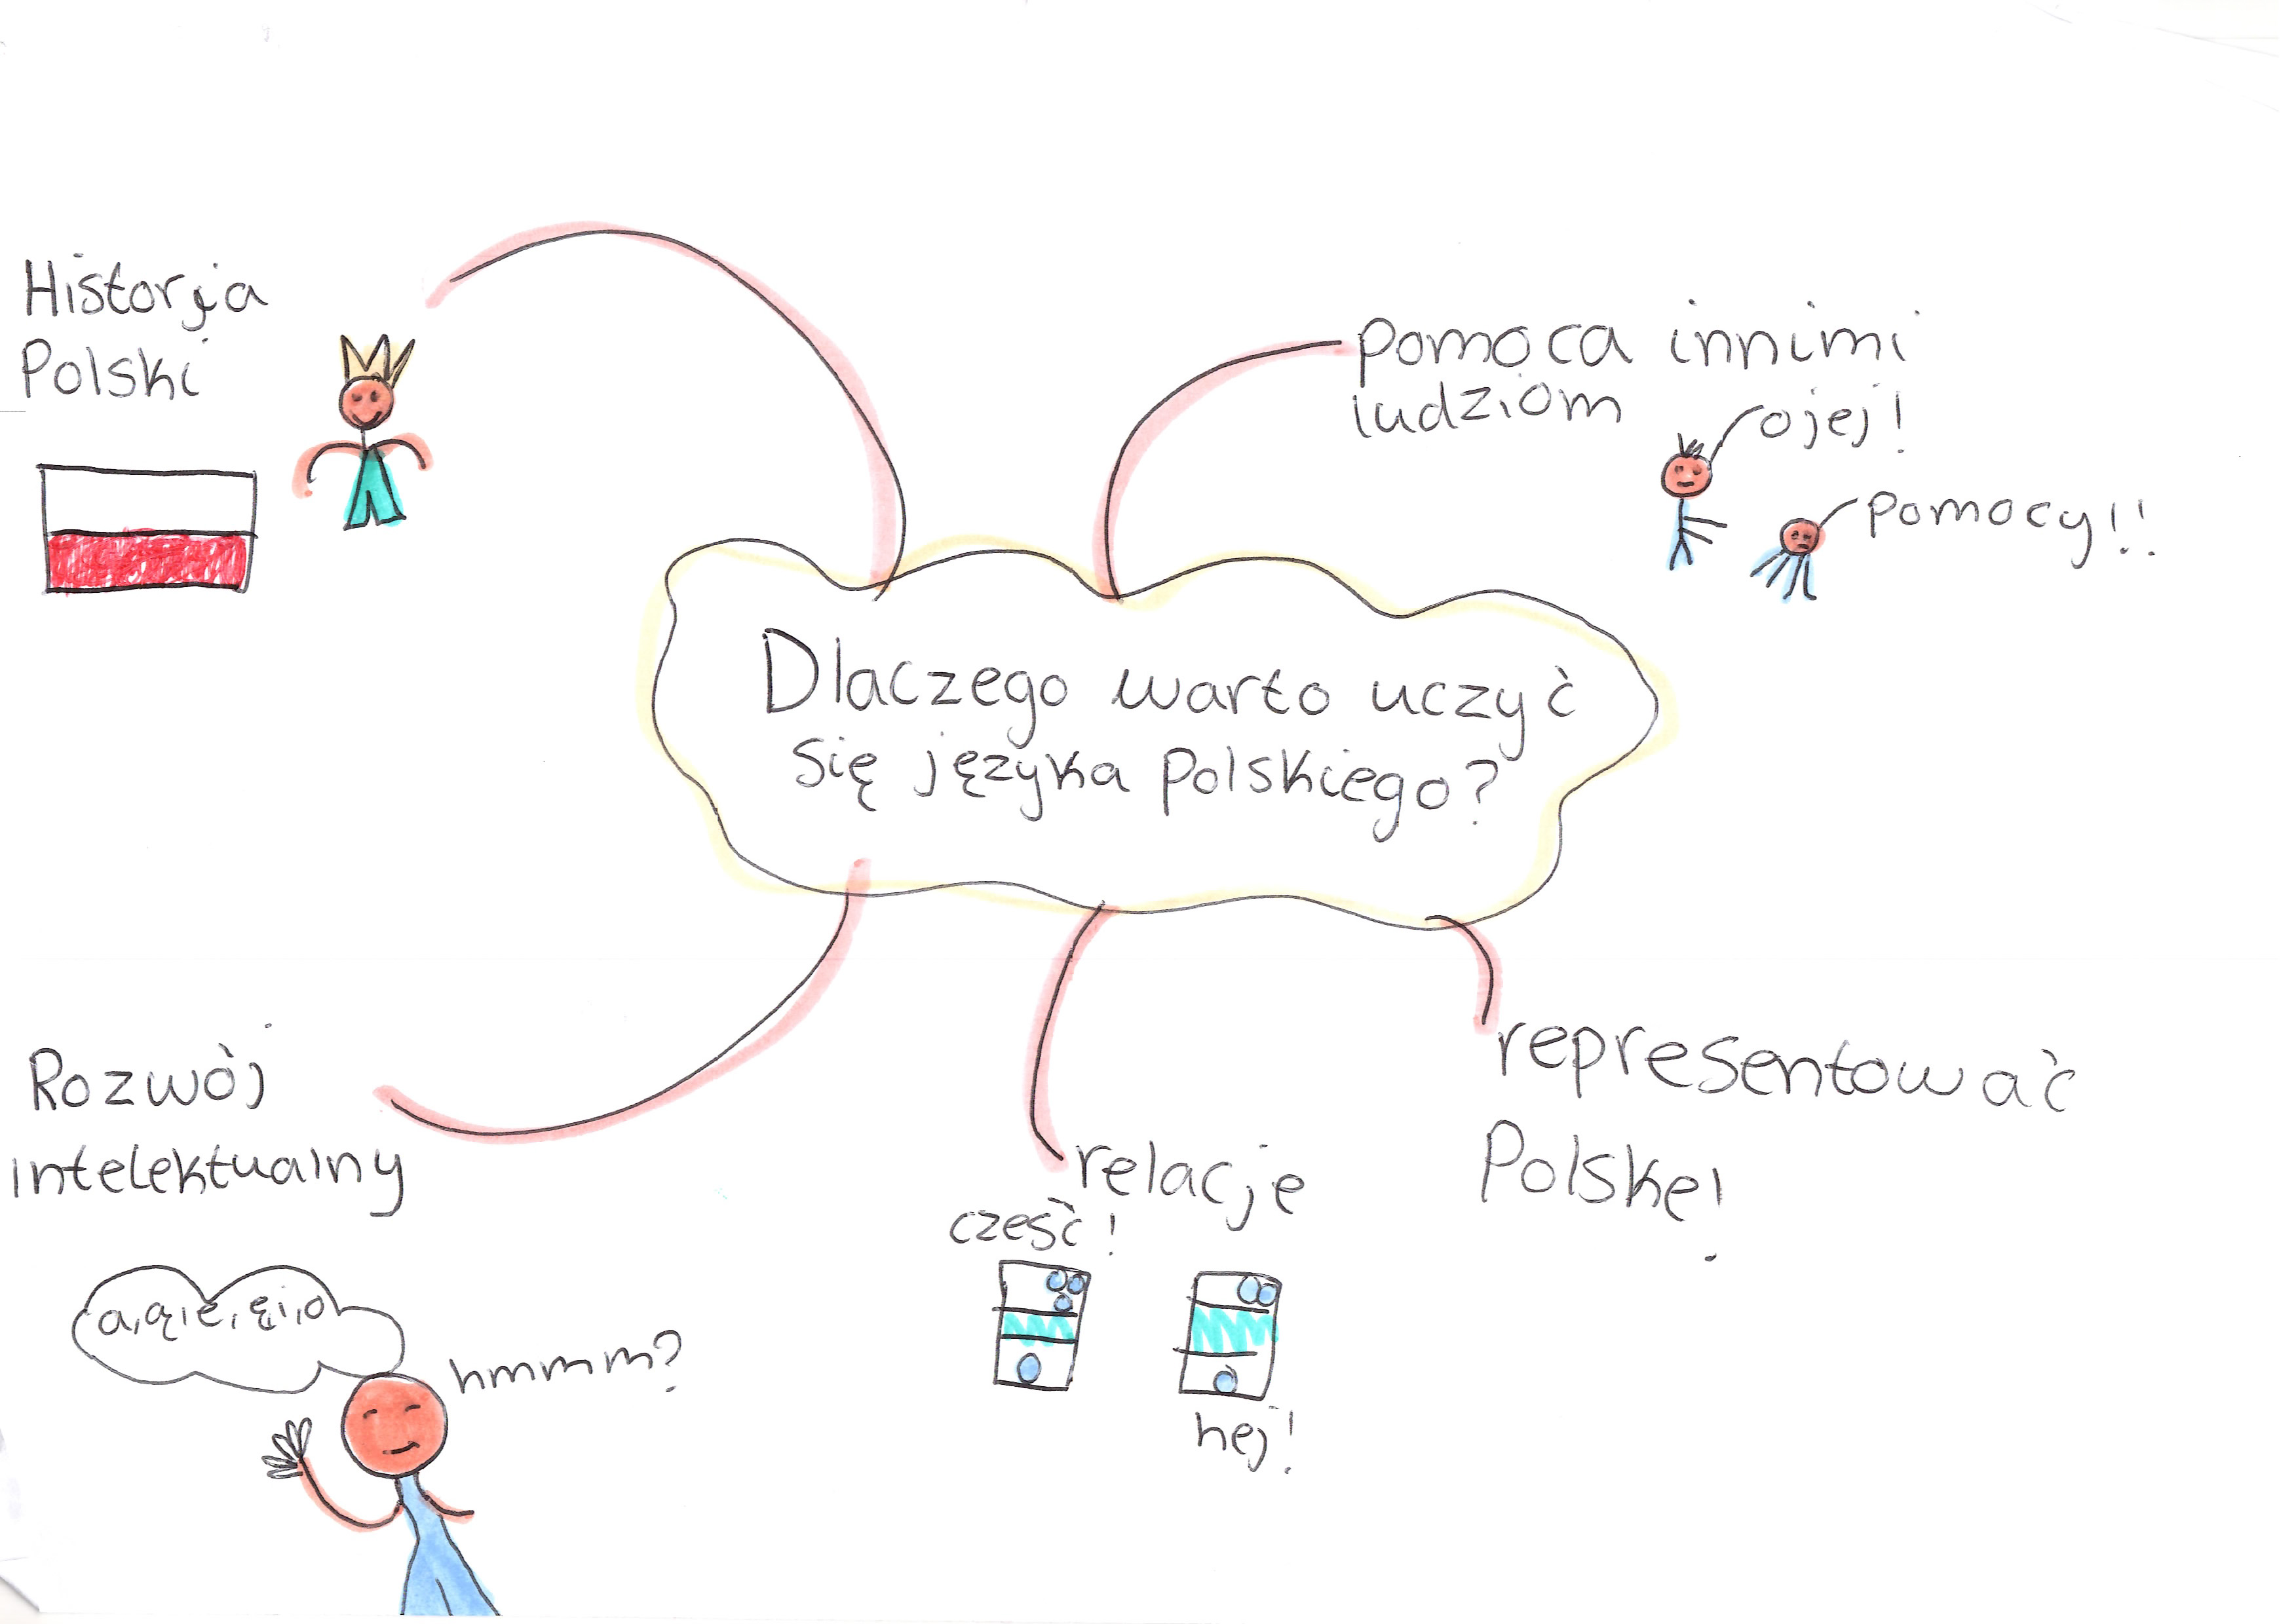 Historja
Polski
pomoca innimi
ludziom
ojej!
pomocy!!
Dlaczego warto uczyć
się języka polskiego?
Rozwój
intelektualny
a, ą, e, ę, i, o
hmmm?
relacje
cześć!
hej!
representować
Polskę!